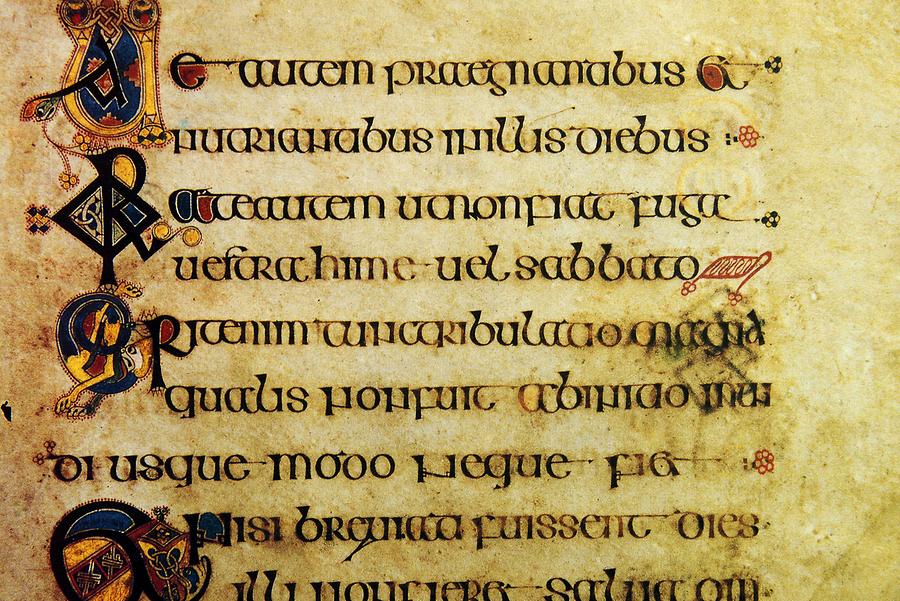 Uae autem praegnantibus et
nutrientibus inillis diebus
Orateautem utnonfiat fuga
uestra hime uel sabbato
Eritenim tunc tribulatio magna
qualis nonfuit abinitio mun
di usque modo neque fiet
Et nisi breuiati fuissent dies
illi nonfieret salua om